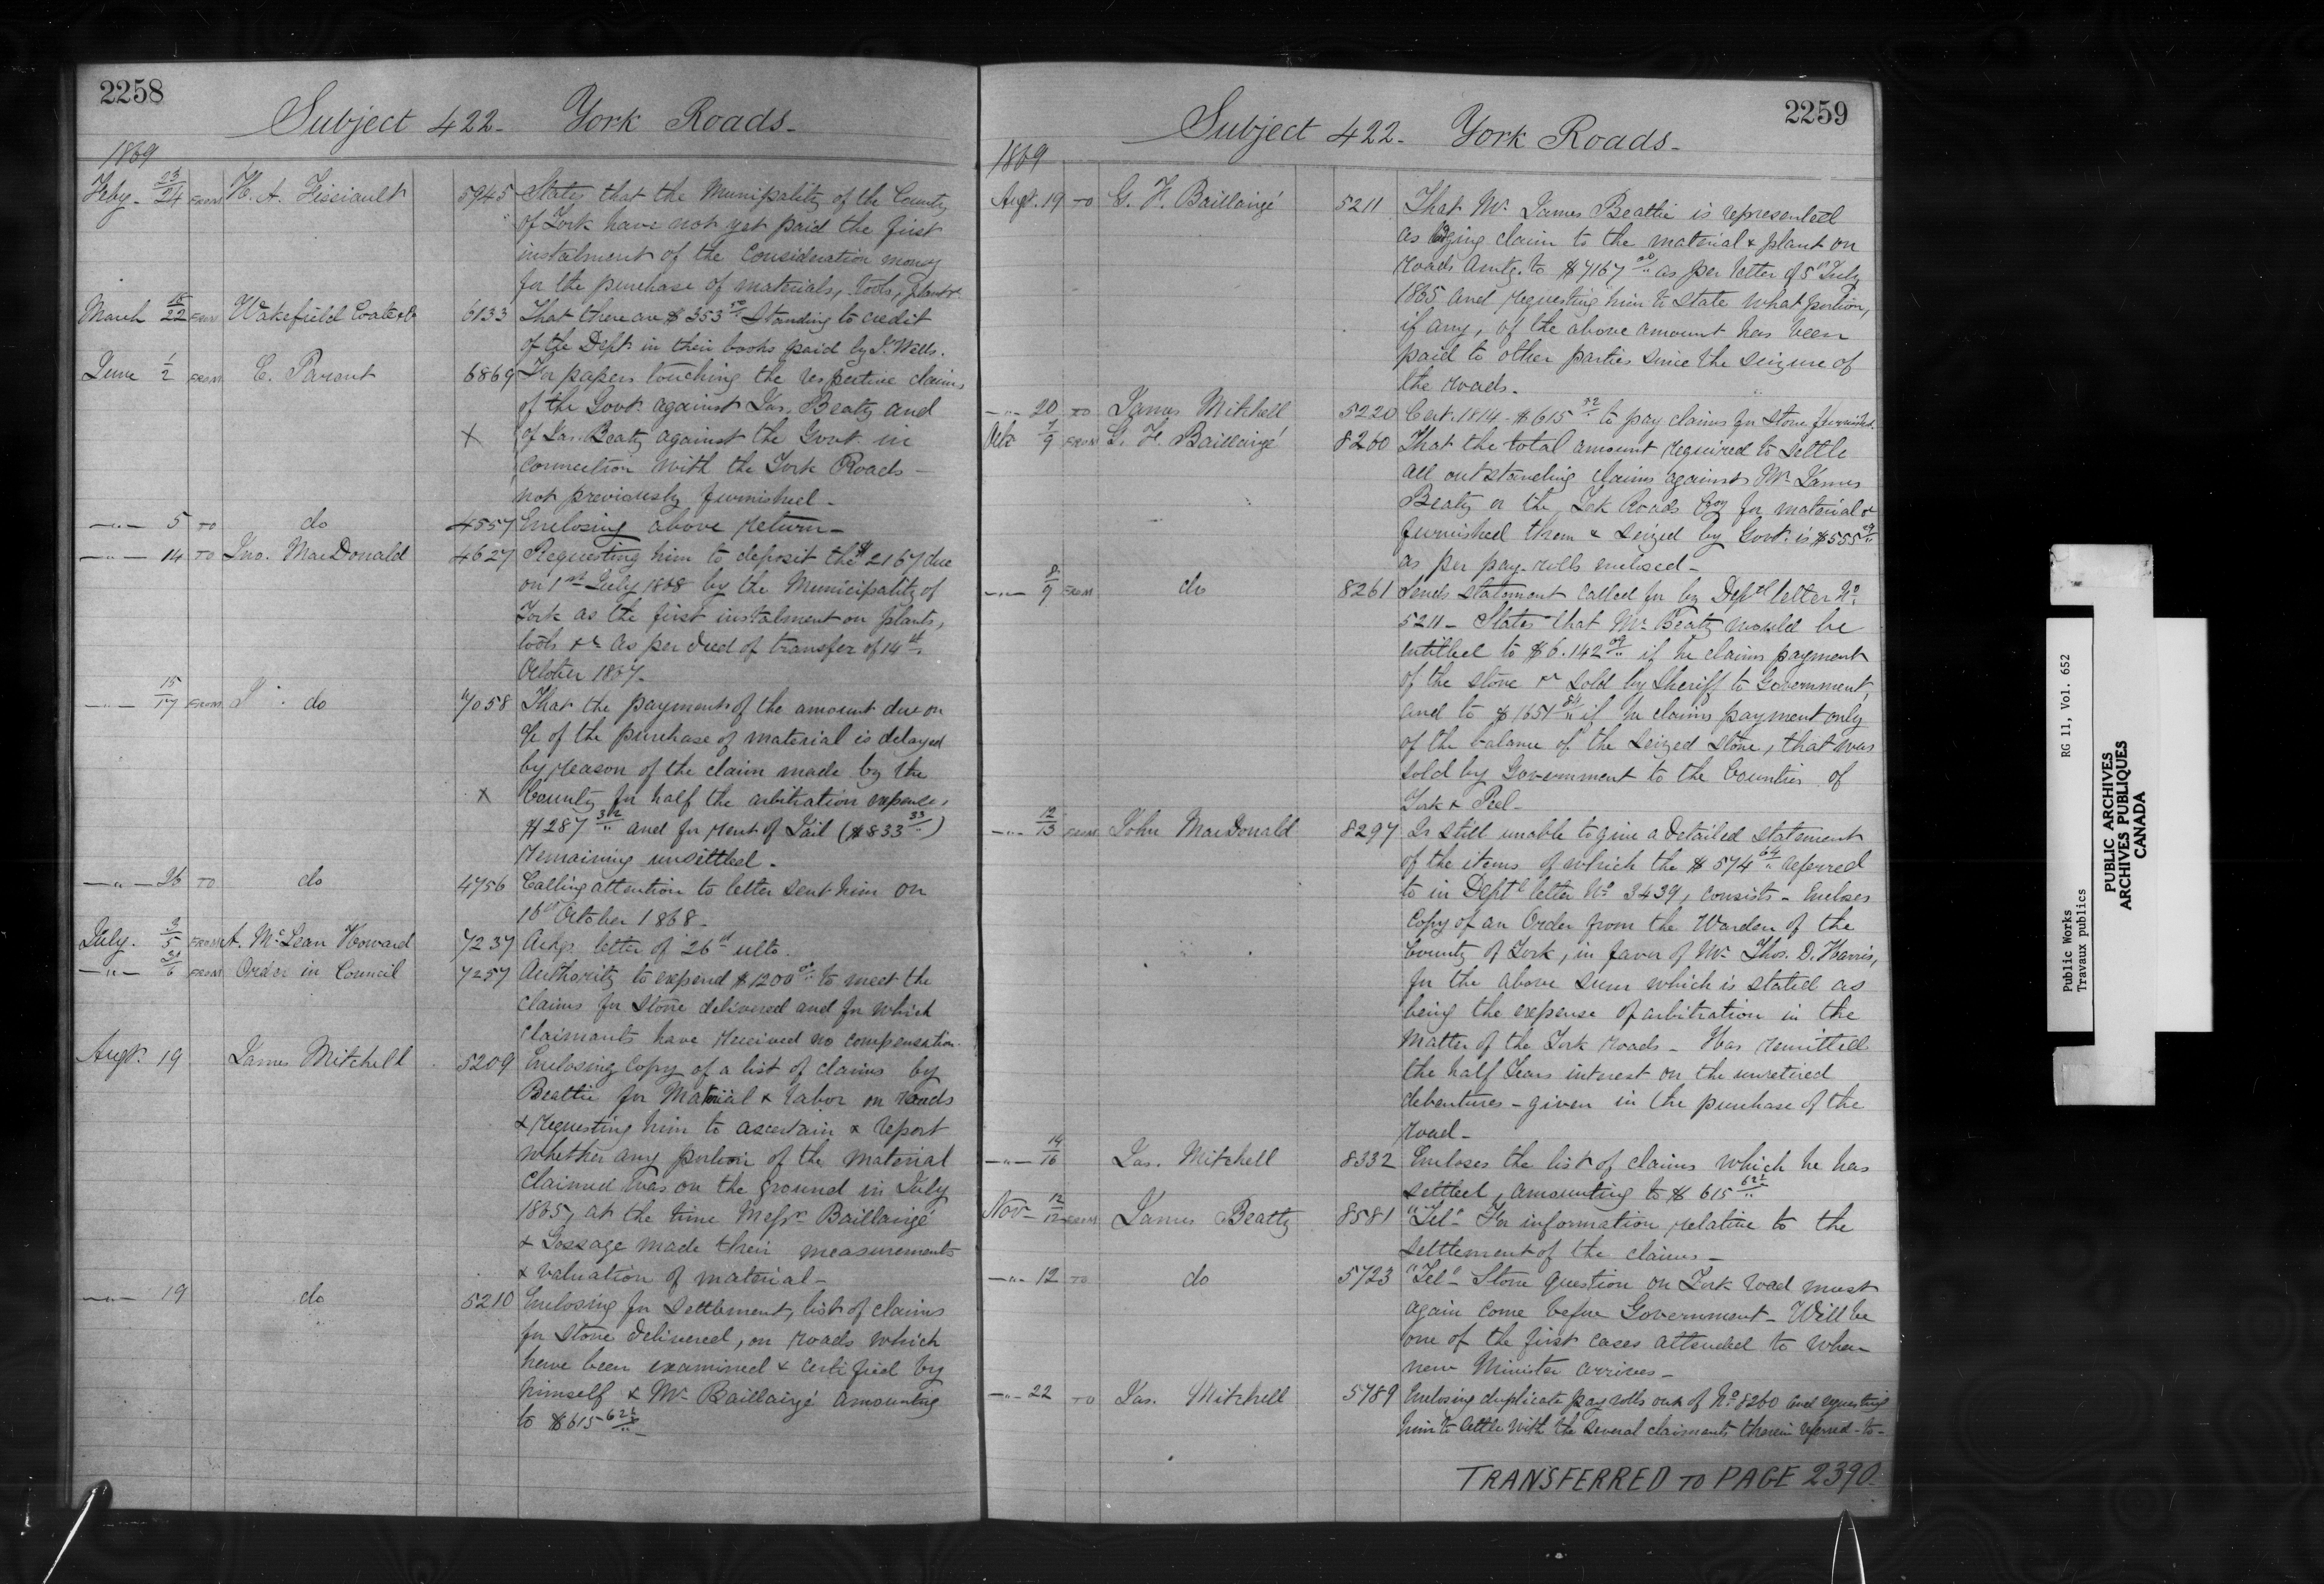 2258
Subject 422 - York Roads -
1869
Feby - 23/24 FROM H. A. Fissiault 5945 States that the Municipality of the County
of York have not yet paid the first
instalment of the Consideration money
for the purchase of materials, Tools, plant &c
March 18/22 FROM Wakefield Coate & Co 6133 That there are $353 50/.. Standing to credit
of the Dept. in their books paid by J. Wells.
June 1/2 FROM E. Parent 6869 For papers touching the respective claims
of the Govt. against Jas. Beaty and
X of Jas. Beaty against the Govt. in
connection with the York Roads -
not previously furnished -
—"— 5 TO do 4557 Enclosing above return -
—"— 14 TO Jno. MacDonald 4627 Requesting him to deposit the $2167 due
on 1st July 1868 by the Municipality of
York as the first instalment on plants,
tools &c as per deed of transfer of 14th
October 1867.
—"— 15/17 FROM do 7058 That the payment of the amount due on
a/c of the purchase of material is delayed
by reason of the claim made by the
X County for half the arbitration expense,
$287 32/.. and for rent of Jail ($833 33/..)
remaining unsettled -
—"— 26 TO do 4756 Calling attention to letter sent him on
16th October 1868 -
July. 2/5 FROM A. McLean Howard 7237 Ackgs. letter of 26th ulto.
—"— /6 FROM Order in Council 7257 Authority to expend $1200 00/.. to meet the
claims for Stone delivered and for which
claimants have received no compensation.
Augt. 19 James Mitchell 5209 Enclosing copy of a list of claims by
Beattie for Material & labor on roads
& requesting him to ascertain & report
whether any portion of the material
claimed was on the ground in July
1865, at the time Messrs Baillairgé
& Gossage made their measurements
& valuation of material -
—"— 19 do 5210 Enclosing for settlement, list of claims
for stone delivered, on roads which
have been examined & certified by
himself & Mr. Baillairgé amounting
to $615 62½/.. -
2259
Subject 422 - York Roads -
1869
Augt. 19 TO G. F. Baillairgé 5211 That Mr. James Beattie is represented
as lodging claim to the material & plant on
roads amtg. to $7167 00/.. as per letter of 5th July
1865 and requesting him to state what portion,
if any, of the above amount has been
paid to other parties since the seizure of
the roads -
—"— 20 TO James Mitchell 5220 Cert. 1814 - $615 52/.. to pay claims for Stone furnished.
Octr 7/9 FROM G. F. Baillairgé 8260 That the total amount required to settle
all outstanding claims against Mr. James
Beaty or the York Roads Coy for material &c
furnished them & seized by Govt. is $555 29/..
as per pay-rolls enclosed -
—"— 8/9 FROM do 8261 Sends statement called for by Deptl letter No.
5211 - States that Mr. Beaty would be
entitled to $6.142 09/.. if he claims payment
of the stone &c sold by Sheriff to Government,
and to $1651 84/.. if he claims payment only
of the balance of the seized stone, that was
sold by Government to the Counties of
York & Peel -
—"— 12/13 FROM John MacDonald 8297 Is still unable to give a detailed statement
of the items of which the $574 64/.. referred
to in Deptl letter No. 3439, consists - Encloses
copy of an Order from the Warden of the
County of York, in favor of Mr. Thos. D. Harris,
for the above sum which is stated as
being the expense of arbitration in the
matter of the York roads - Has remitted
the half Years interest on the unretired
debentures - given in the purchase of the
road -
—"— 14/16 Jas. Mitchell 8332 Encloses the list of claims which he has
settled, amounting to $615 62½/..
Novr 12/12 FROM James Beatty 8581 "Tel" For information relative to the
settlement of the claims -
—"— 12 TO do 5723 "Tel" Stone question on York road must
again come before Government - Will be
one of the first cases attended to when
new Minister arrives -
—"— 22 TO Jas. Mitchell 5789 Enclosing duplicate pay rolls out of No. 8260 and requesting
him to settle with the several claimants therein referred - to -
TRANSFERRED TO PAGE 2390.
Public Works RG 11, Vol. 652
Travaux publics
PUBLIC ARCHIVES
ARCHIVES PUBLIQUES
CANADA